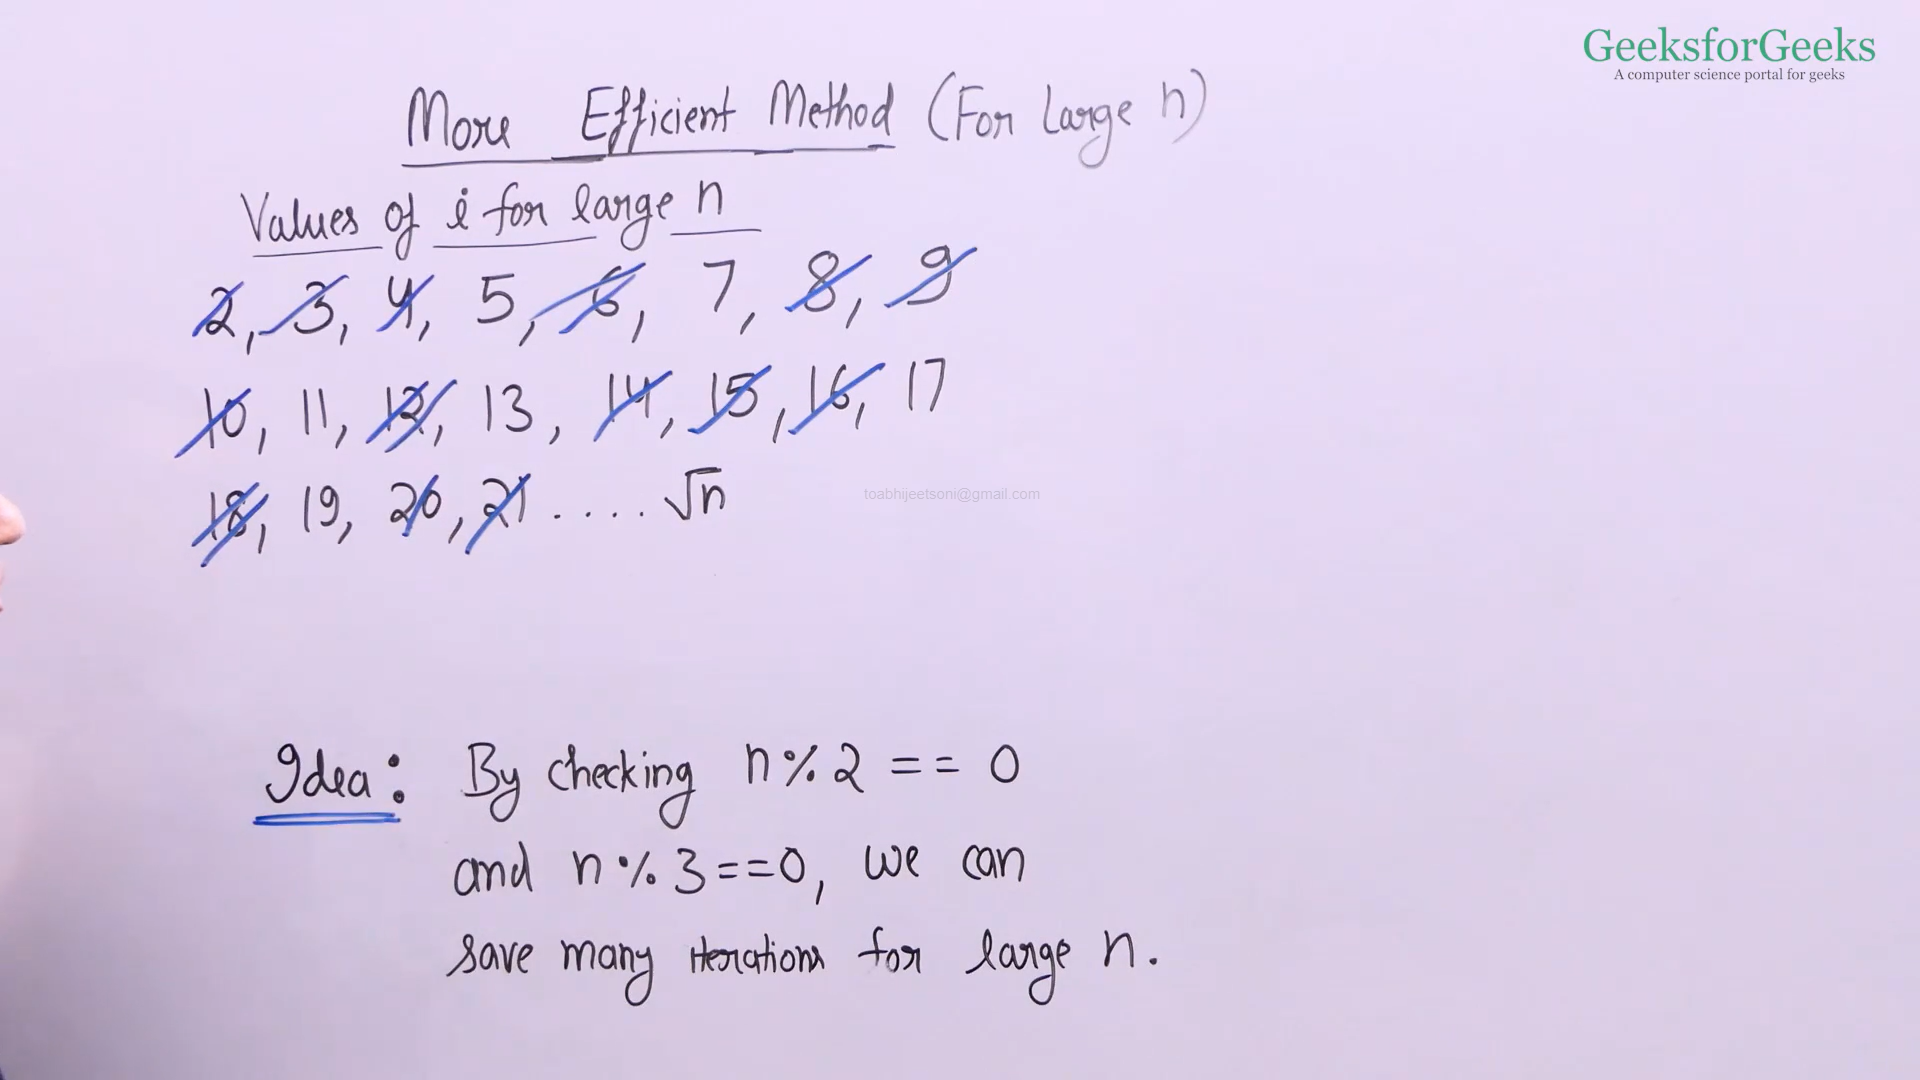 GeeksforGeeks
A computer science portal for geeks
More Efficient Method (For Large n)
Values of i for large n
2, 3, 4, 5, 6, 7, 8, 9
10, 11, 12, 13, 14, 15, 16, 17
18, 19, 20, 21 .... √n
toabhijeetsoni@gmail.com
Idea: By checking n%2 == 0
and n%3==0, we can
save many iterations for large n.